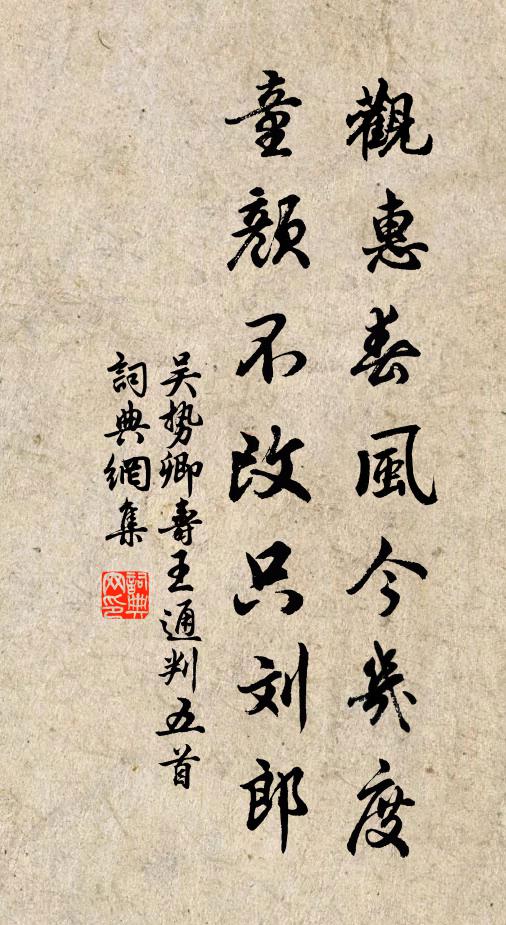 觀惠春風今幾度
童顏不改只刘郎
吴势卿壽王通判五首
詞典網集
詞典网印